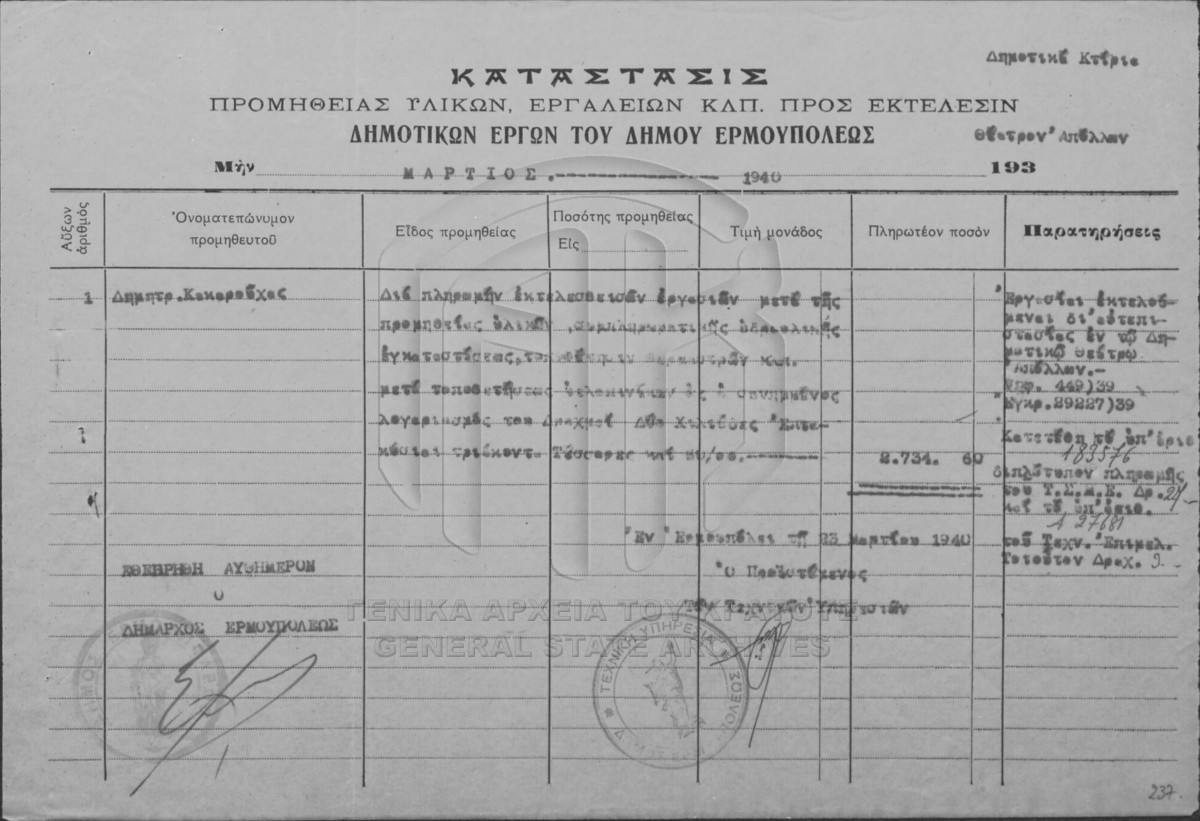 Δημοτικά Κτίρια
ΚΑΤΑΣΤΑΣΙΣ
ΠΡΟΜΗΘΕΙΑΣ ΥΛΙΚΩΝ, ΕΡΓΑΛΕΙΩΝ ΚΛΠ. ΠΡΟΣ ΕΚΤΕΛΕΣΙΝ
ΔΗΜΟΤΙΚΩΝ ΕΡΓΩΝ ΤΟΥ ΔΗΜΟΥ ΕΡΜΟΥΠΟΛΕΩΣ
Θέατρον Ἀπόλλων
Μὴν ΜΑΡΤΙΟΣ.- 1940 193
Αὔξων ἀριθμός
Ὀνοματεπώνυμον
προμηθευτοῦ
Εἶδος προμηθείας
Ποσότης προμηθείας
Εἰς
Τιμὴ μονάδος
Πληρωτέον ποσὸν
Παρατηρήσεις
1 Δημητρ.Κακαροῦχας
Διὰ πληρωμὴν ἐκτελεσθεισῶν ἐργασιῶν μετὰ τῆς
προμηθείας ὑλικῶν, συμπληρωματικῆς ὑδραυλικῆς
ἐγκαταστάσεως, θερμαστρῶν και
μετὰ τοποθετήσεως ὑελοπινάκων ὡς ὁ συνημμένος
λογαριασμός του Δραχμαί Δύο Χιλιάδες Ἑπτα-
κόσιαι τριάκοντα Τέσσαρες καί 60/οο.-
2.734. 60
Ἐργασίαι ἐκτελού-
μεναι δι'αὐτεπι-
στασίας ἐν τῷ Δη-
μοτικῷ Θεάτρῳ
Ἀπόλλων.-
449)39
Ἐγκρ.29227)39
Κατετέθη τό ὑπ'ἀριθ
183576
διπλότυπον πληρωμῆς
του Τ.Σ.Μ.Ε. Δρ. 27-
καί τό ὑπ'ἀριθ.
Α 27681
τοῦ Τεχν. Ἐπιμελ.
Τοιοῦτον Δραχ. 9.-
Ἐν Ἑρμουπόλει τῇ 23 Μαρτίου 1940
Ὁ Προϊστάμενος
Τῶν Τεχνικῶν Ὑπηρεσιῶν
ΕΘΕΩΡΗΘΗ ΑΥΘΗΜΕΡΟΝ
Ο
ΔΗΜΑΡΧΟΣ ΕΡΜΟΥΠΟΛΕΩΣ
ΓΕΝΙΚΑ ΑΡΧΕΙΑ ΤΟΥ ΚΡΑΤΟΥΣ
GENERAL STATE ARCHIVES
ΤΕΧΝΙΚΗ ΥΠΗΡΕΣΙΑ
ΔΗΜΟΣ
237.